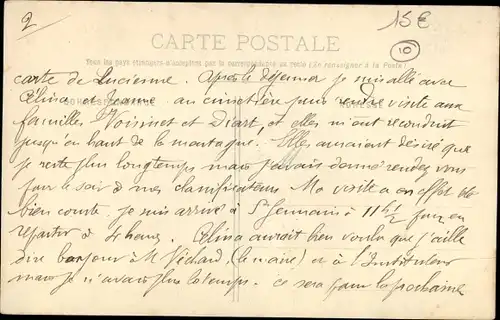 2
15€
10
CARTE POSTALE
Tous les pays étrangers n'acceptent pas la correspondance au recto (Se renseigner à la Poste)
carte de Lucienne. Après le déjeuner je suis allé avec
Célina et Jeanne au cimetière pour rendre visite aux
familles Voisinet et Diart, et elles m'ont reconduit
jusqu'au haut de la montagne. Elles auraient désiré que
je reste plus longtemps mais j'avais donné rendez vous
pour le soir à mes classificateurs. Ma visite a en effet été
bien courte. je suis arrivé à St Germain à 11 h 1/2 pour en
repartir à 4 heures. Célina aurait bien voulu que j'aille
dire bonjour à M. (le maire) et à l'Instituteur
mais je n'avais plus le temps. ce sera pour la prochaine